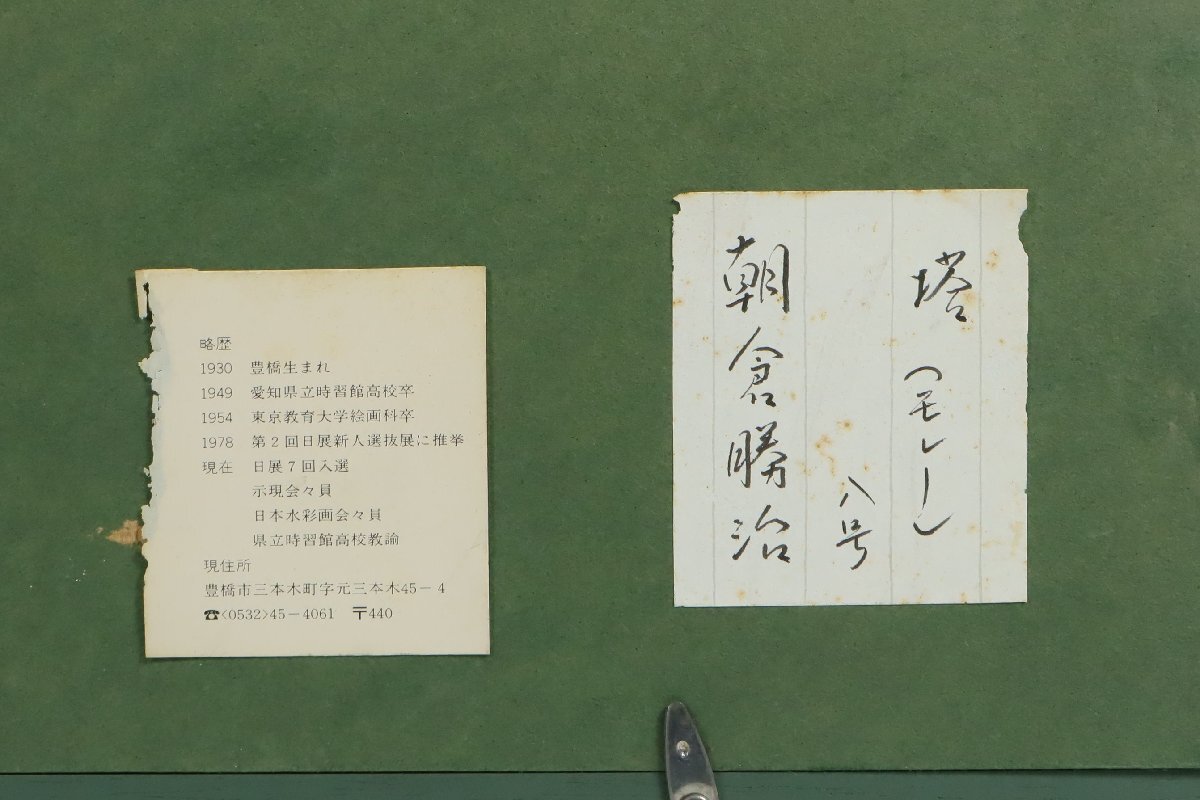 略歴
1930 豊橋生まれ
1949 愛知県立時習館高校卒
1954 東京教育大学絵画科卒
1978 第2回日展新人選抜展に推挙
現在 日展7回入選
示現会々員
日本水彩画会々員
県立時習館高校教諭
現住所
豊橋市三本木町字元三本木45-4
☎<0532>45-4061 〒440
塔(モレー)
八号
朝倉勝治